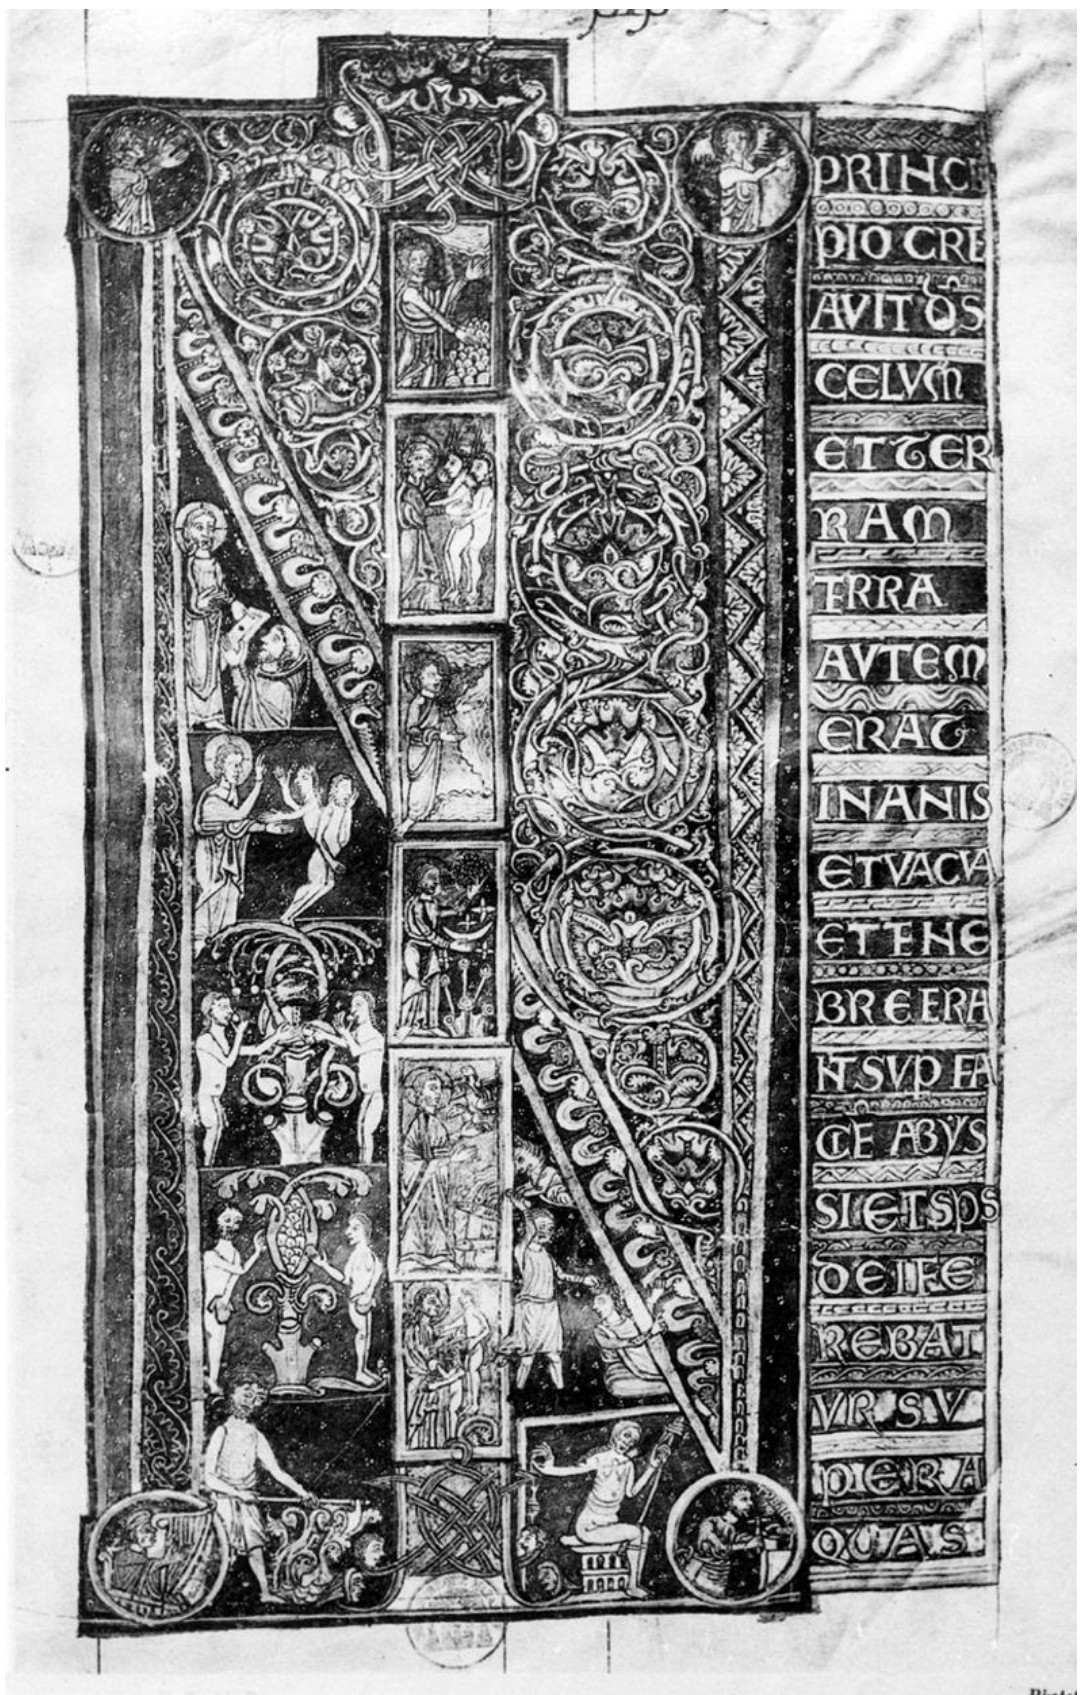 PRINCI
PIO CRE
AVIT DS
CELVM
ET TER
RAM
TRRA
AVTEM
ERAT
INANIS
ET VACVA
ET TENE
BRE ERA
NT SUP FA
CIE ABYS
SI ET SPS
DEI FE
REBAT
VR SV
PER A
QUAS